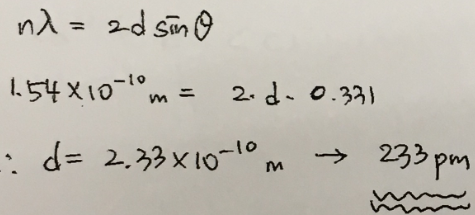 nλ = 2d sinθ
1.54 × 10⁻¹⁰ m = 2 · d · 0.331
∴ d = 2.33 × 10⁻¹⁰ m → 233 pm